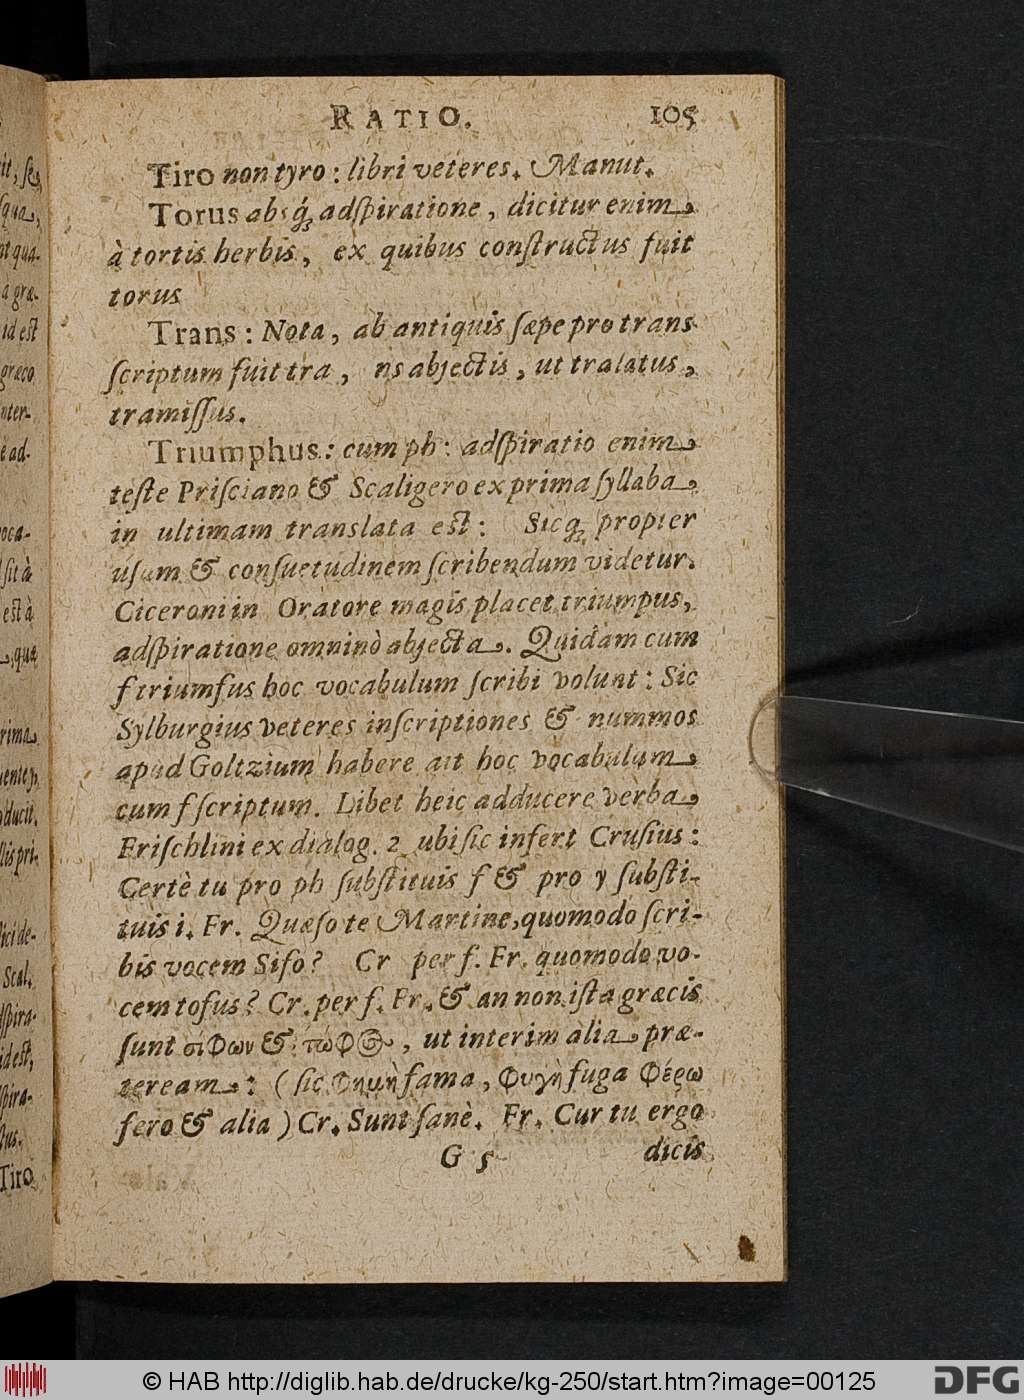 RATIO. 105
Tiro non tyro: libri veteres. Manut.
Torus absq́ꝫ adſpiratione, dicitur enim
à tortis herbis, ex quibus conſtructus fuit
torus
Trans: Nota, ab antiquis ſæpe pro trans
ſcriptum fuit tra, ns abjectis, ut tralatus,
tramiſſus.
Triumphus: cum ph: adſpiratio enim
teſte Priſciano & Scaligero ex prima ſyllaba
in ultimam translata est: Sicqꝫ propter
uſum & conſuetudinem ſcribendum videtur.
Ciceroni in Oratore magis placet triumpus,
adſpiratione omninò abjecta. Quidam cum
f triumfus hoc vocabulum ſcribi volunt: Sic
Sylburgius veteres inſcriptiones & nummos
apud Goltzium habere ait hoc vocabulum
cum f ſcriptum. Libet heic adducere verba
Friſchlini ex dialog. 2 ubi ſic infert Cruſius:
Certè tu pro ph ſubſtituis f & pro y ſubſti-
tuis i. Fr. Quæſo te Martine, quomodo ſcri-
bis vocem Sifo? Cr per f. Fr. quomodo vo-
cem tofus? Cr. per f. Fr. & an non iſta græcis
ſunt σιφων & τώφος, ut interim alia præ-
teream: (ſic φημὴ fama, φυγὴ fuga φέρω
fero & alia) Cr. Sunt ſanè. Fr. Cur tu ergo
G 5 dicis
it, ſe,
ſqua,
nt qua-
a græ-
id eſt
græco
nter-
e ad-
voca-
ſit à
est à
, qua
rima
ducit.
lis pri-
lici de-
Scal.
dſpira-
id eſt,
ſpira-
Tiro
© HAB http://diglib.hab.de/drucke/kg-250/start.htm?image=00125
DFG